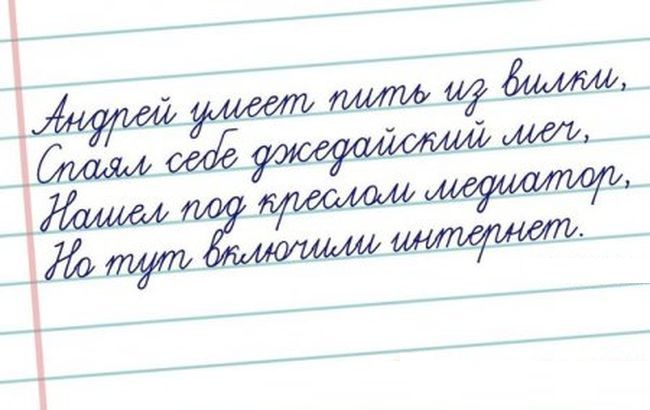 Андрей умеет пить из вилки,
Спаял себе джедайский меч,
Нашел под креслом медиатор,
Но тут включили интернет.